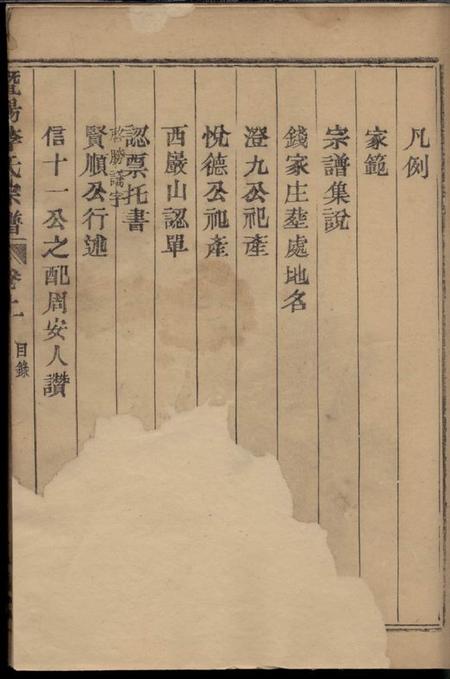 凡例
家範
宗譜集說
錢家庄塟處地名
澄九公祀產
悅德公祀產
西巖山認單
認票托書
賢順公行述
信十一公之配周安人讚
暨陽李氏宗譜
目錄